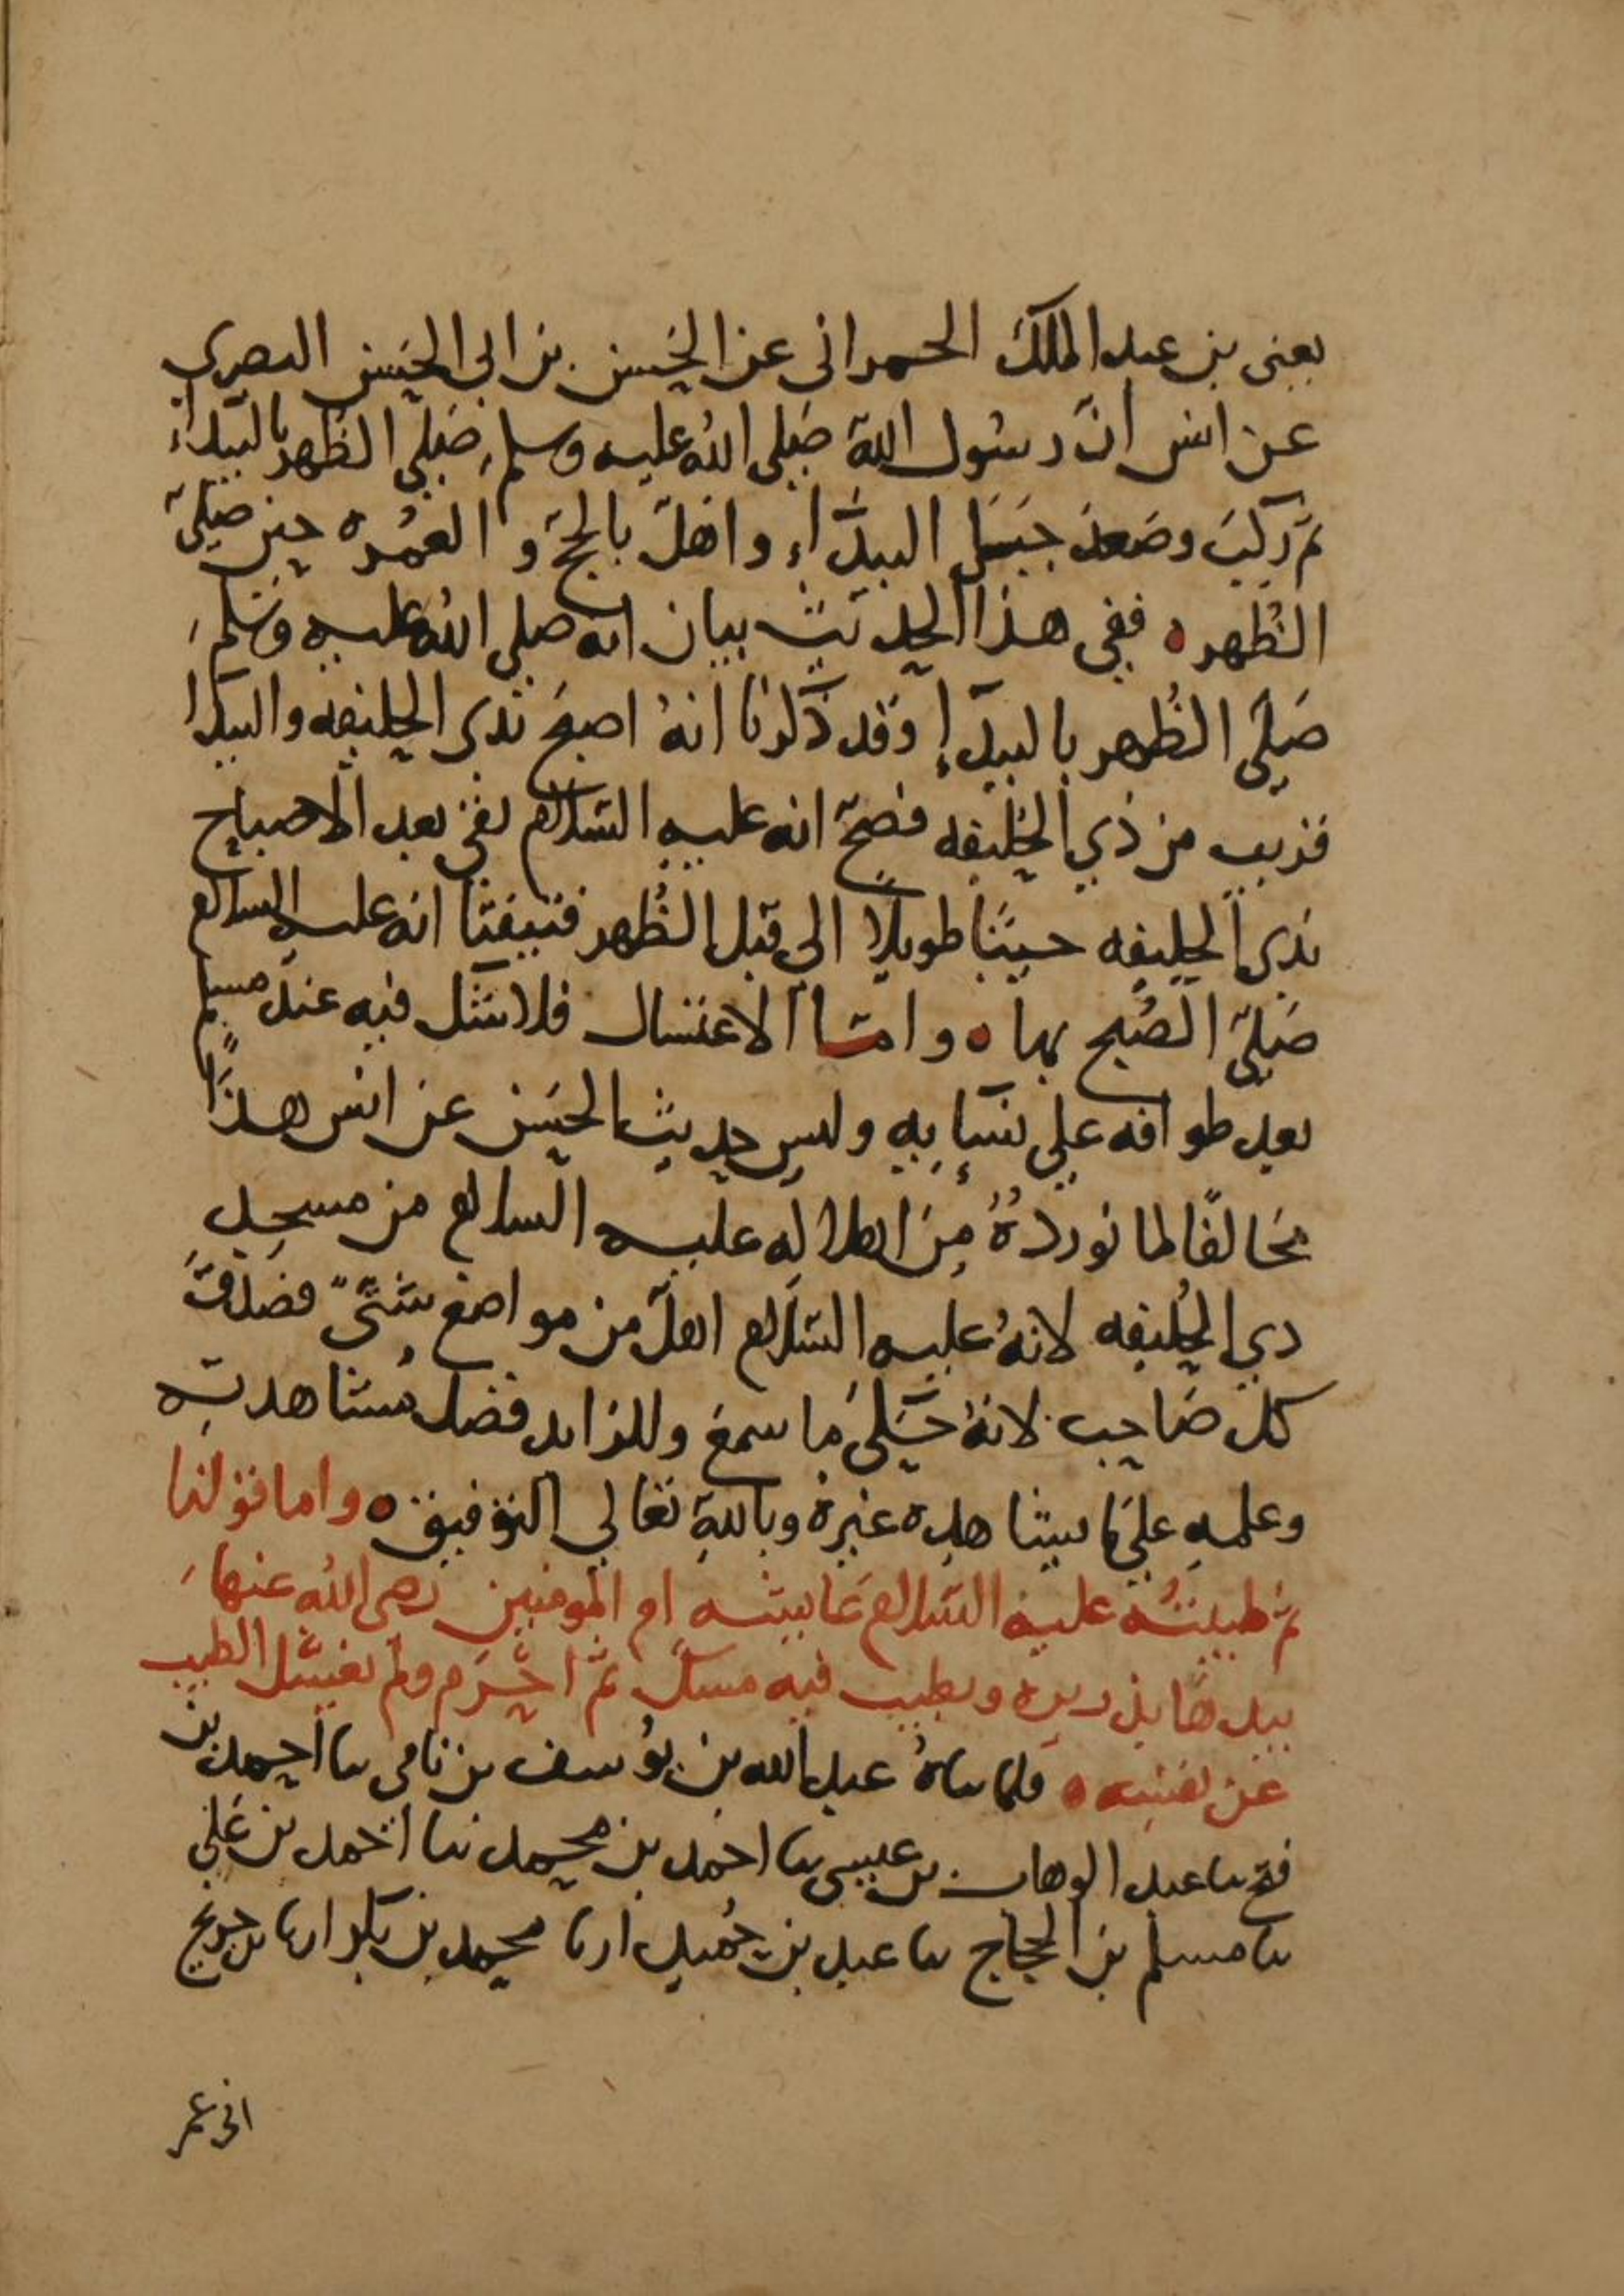 يعنى بن عبد الملك الحمرانى عن الحسن بن ابي الحسن البصري
عن انس انّ رسُول اللّه صَلى اللهُ عليه وسلم صَلي الظُهر بالبيداء
ثم رَكبَ وصَعدَ جَبَل البيدَاء واهَلّ بالحجّ و العُمره حين صَليّ
الظُهر ه ففى هذا الحديث بيان انه صلى اللهُ عليه وسَلم
صَلىَ الظُهر بالبيدَاءِ وَقد ذَكرنَا انهُ اصبحَ بذى الحليفه والبيدا
قريب من ذي الحُليفه فصَحّ انه عليه السَلام بقىَ بعد الاصباح
بذى الحليفه حينًا طويلا الى قبل الظُهر فتيقنَّا انه عليه السلام
صَليّ الصُبح بها ه و امّا الاغتسال فلا شَكّ فيه عند مسلم
بعد طوافه علي نسَآئِه وليس حديث الحسَن عن انس هذَا
مخالفًا لما نوردهُ مِن اهلالِه عليه السلام من مسجد
ذي الحُليفه لانهُ عليه السَلام اهلّ من مواضع شَتّىً فصَدَقَ
كل صَاحب لانهُ حَكىَ ما سمعَ وللزايد فضل مُشاهدتِه
وعلمهِ علىَ ما لم يشاهده غيرهُ وباللهِ تعَالي التوفيق ه واما قولنا
ثم طيبتُه عليهِ السَلام عَايشه ام المومنين رضى اللهُ عنها
بيدهَا بذريره وبطيب فيه مسك ثم احرَم ولم يغسّل الطيب
عن نفسِه ه فلما ثناهُ عبد الله بن يوُسف بن نامى ثنا احمد بن
فتح ثنا عبد الوهاب بن عيسى ثنا احمَد بن محمد ثنا احمد بن عَلي
ثنا مسلم بن الحجاج ثنا عبد بن حُميد انا محمد بن بكر انا بن جريج
انى عمر